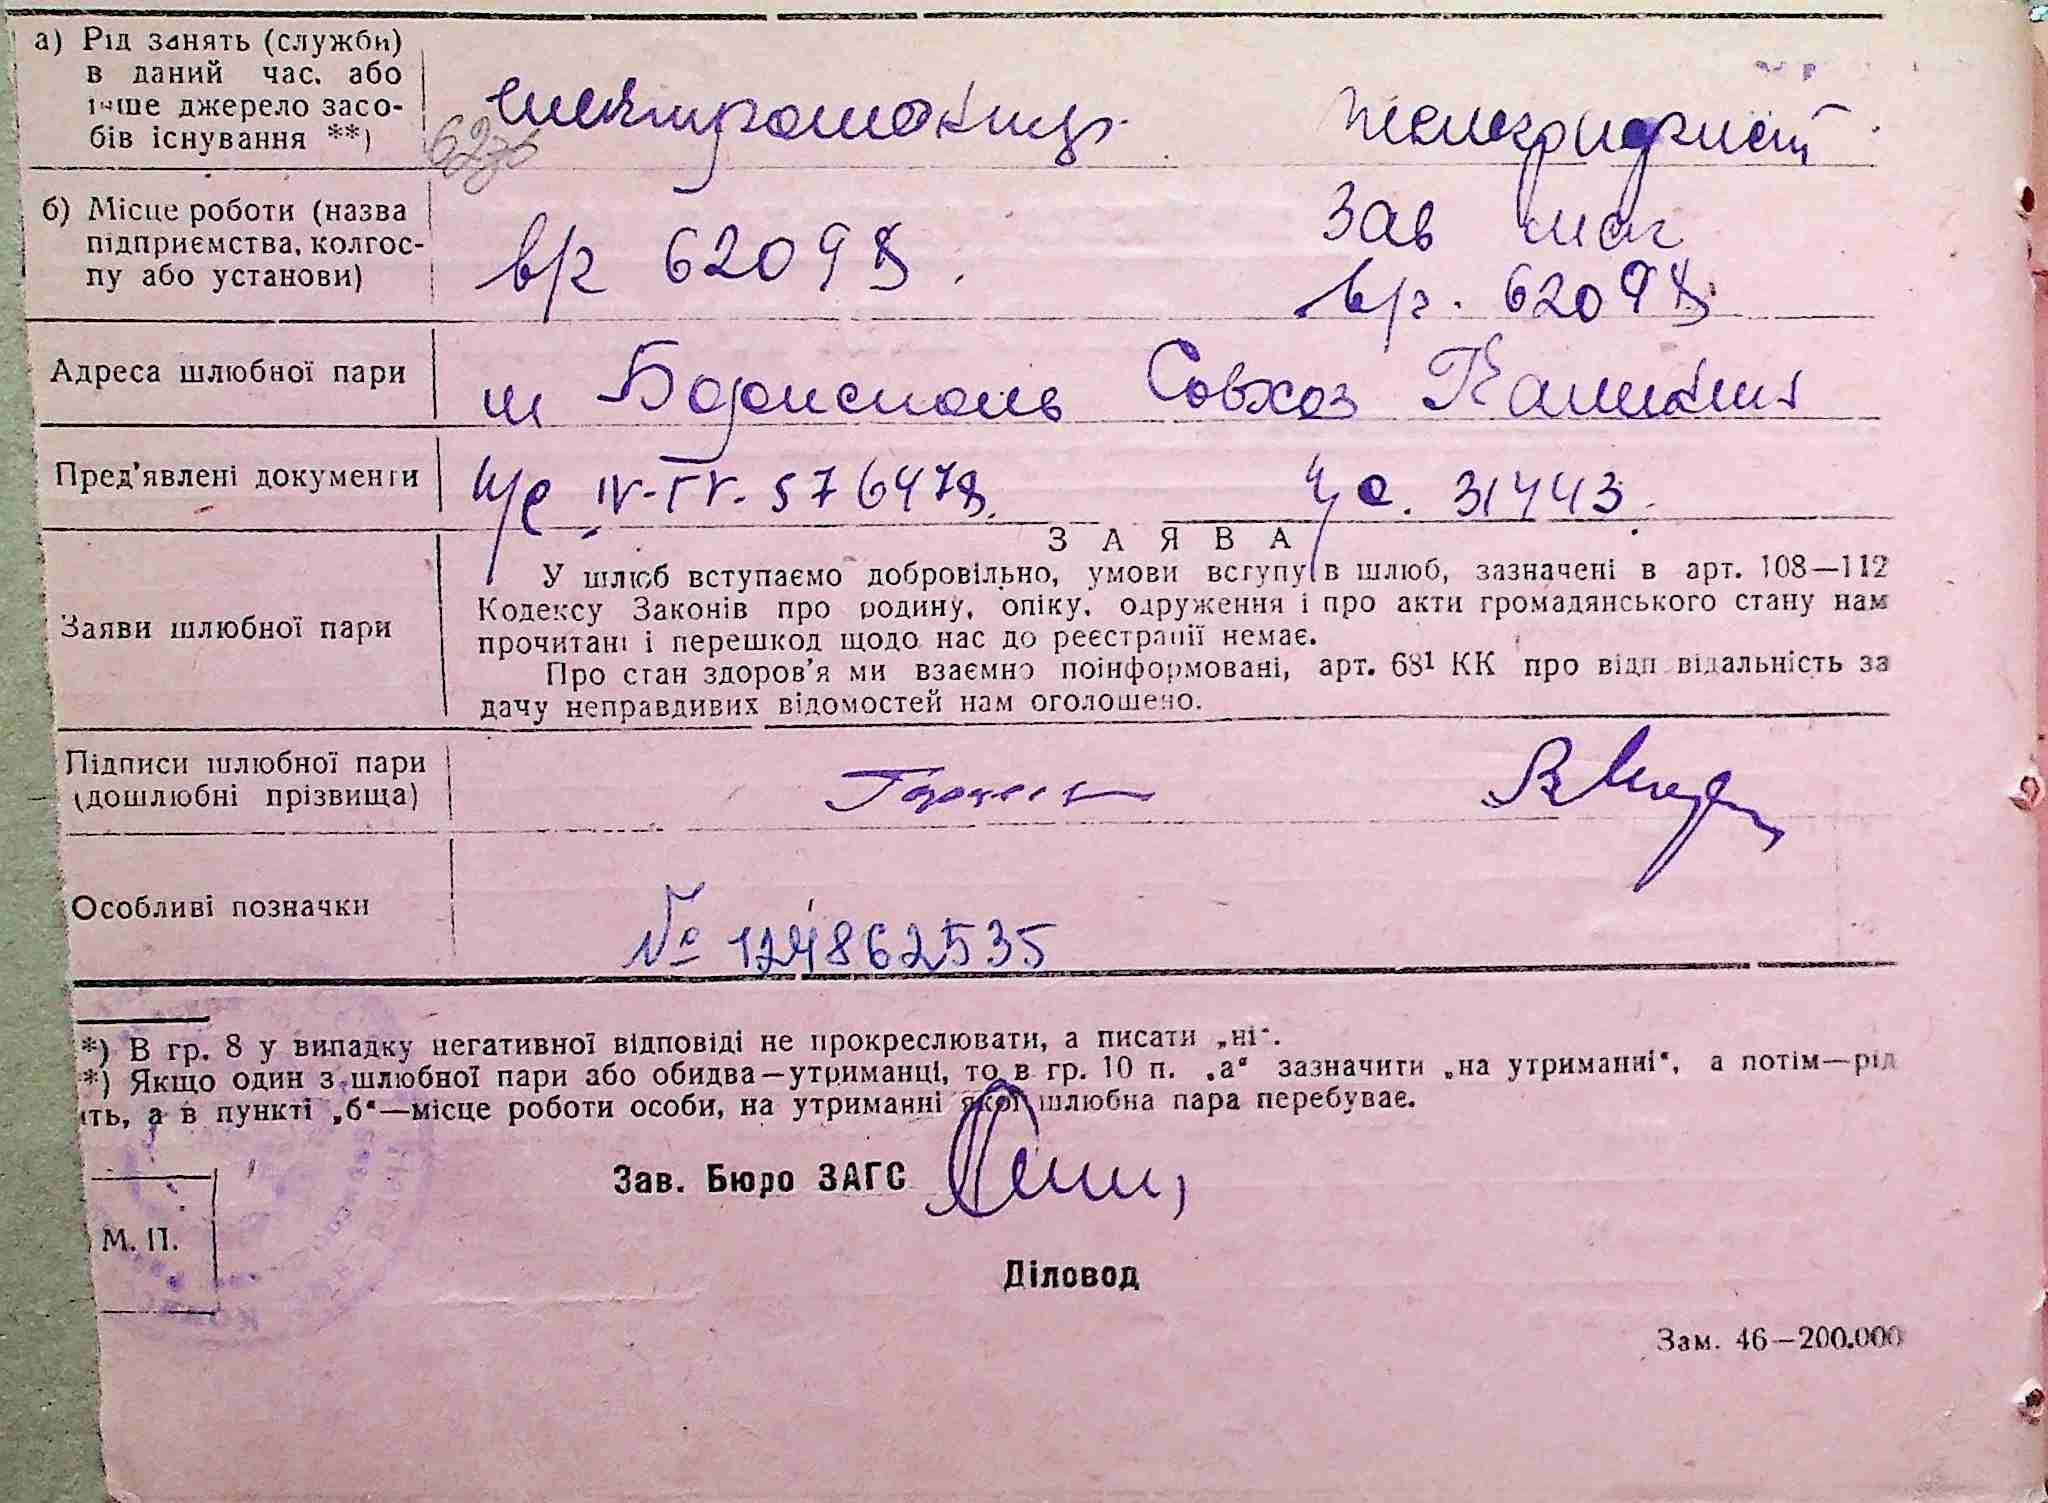 а) Рід занять (служби)
в даний час, або
інше джерело засо-
бів існування **)
телеграфист
б) Місце роботи (назва
підприємства, колгос-
пу або установи)
в/г 62098.
Зав маг
в/г. 62098
Адреса шлюбної пари
м Борисполь Совхоз
Пред'явлені документи
ч/с IV-ГГ. 576478.
ч/с. 31443.
ЗАЯВА
Заяви шлюбної пари
У шлюб вступаємо добровільно, умови вступу в шлюб, зазначені в арт. 108—112
Кодексу Законів про родину, опіку, одруження і про акти громадянського стану нам
прочитані і перешкод щодо нас до реєстрації немає.
Про стан здоров'я ми взаємно поінформовані, арт. 68¹ КК про відповідальність за
дачу неправдивих відомостей нам оголошено.
Підписи шлюбної пари
(дошлюбні прізвища)
Особливі позначки
№ 124862535
*) В гр. 8 у випадку негативної відповіді не прокреслювати, а писати „ні“.
*) Якщо один з шлюбної пари або обидва—утриманці, то в гр. 10 п. „а“ зазначити „на утриманні“, а потім—рід
ть, а в пункті „б“—місце роботи особи, на утриманні якої шлюбна пара перебуває.
Зав. Бюро ЗАГС
М. П.
Діловод
Зам. 46—200.000